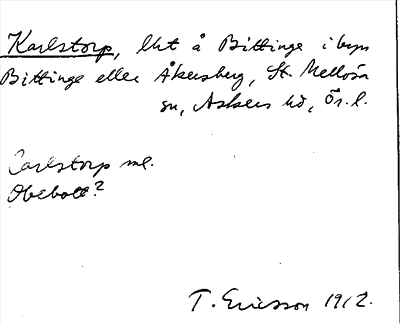 Karlstorp, lht å Bittinge i byn
Bittinge eller Åkersberg, St. Mellösa
sn, Askers hd, Ör. l.
Carlstorp ml.
Obebott?
T. Ericsson 1912.